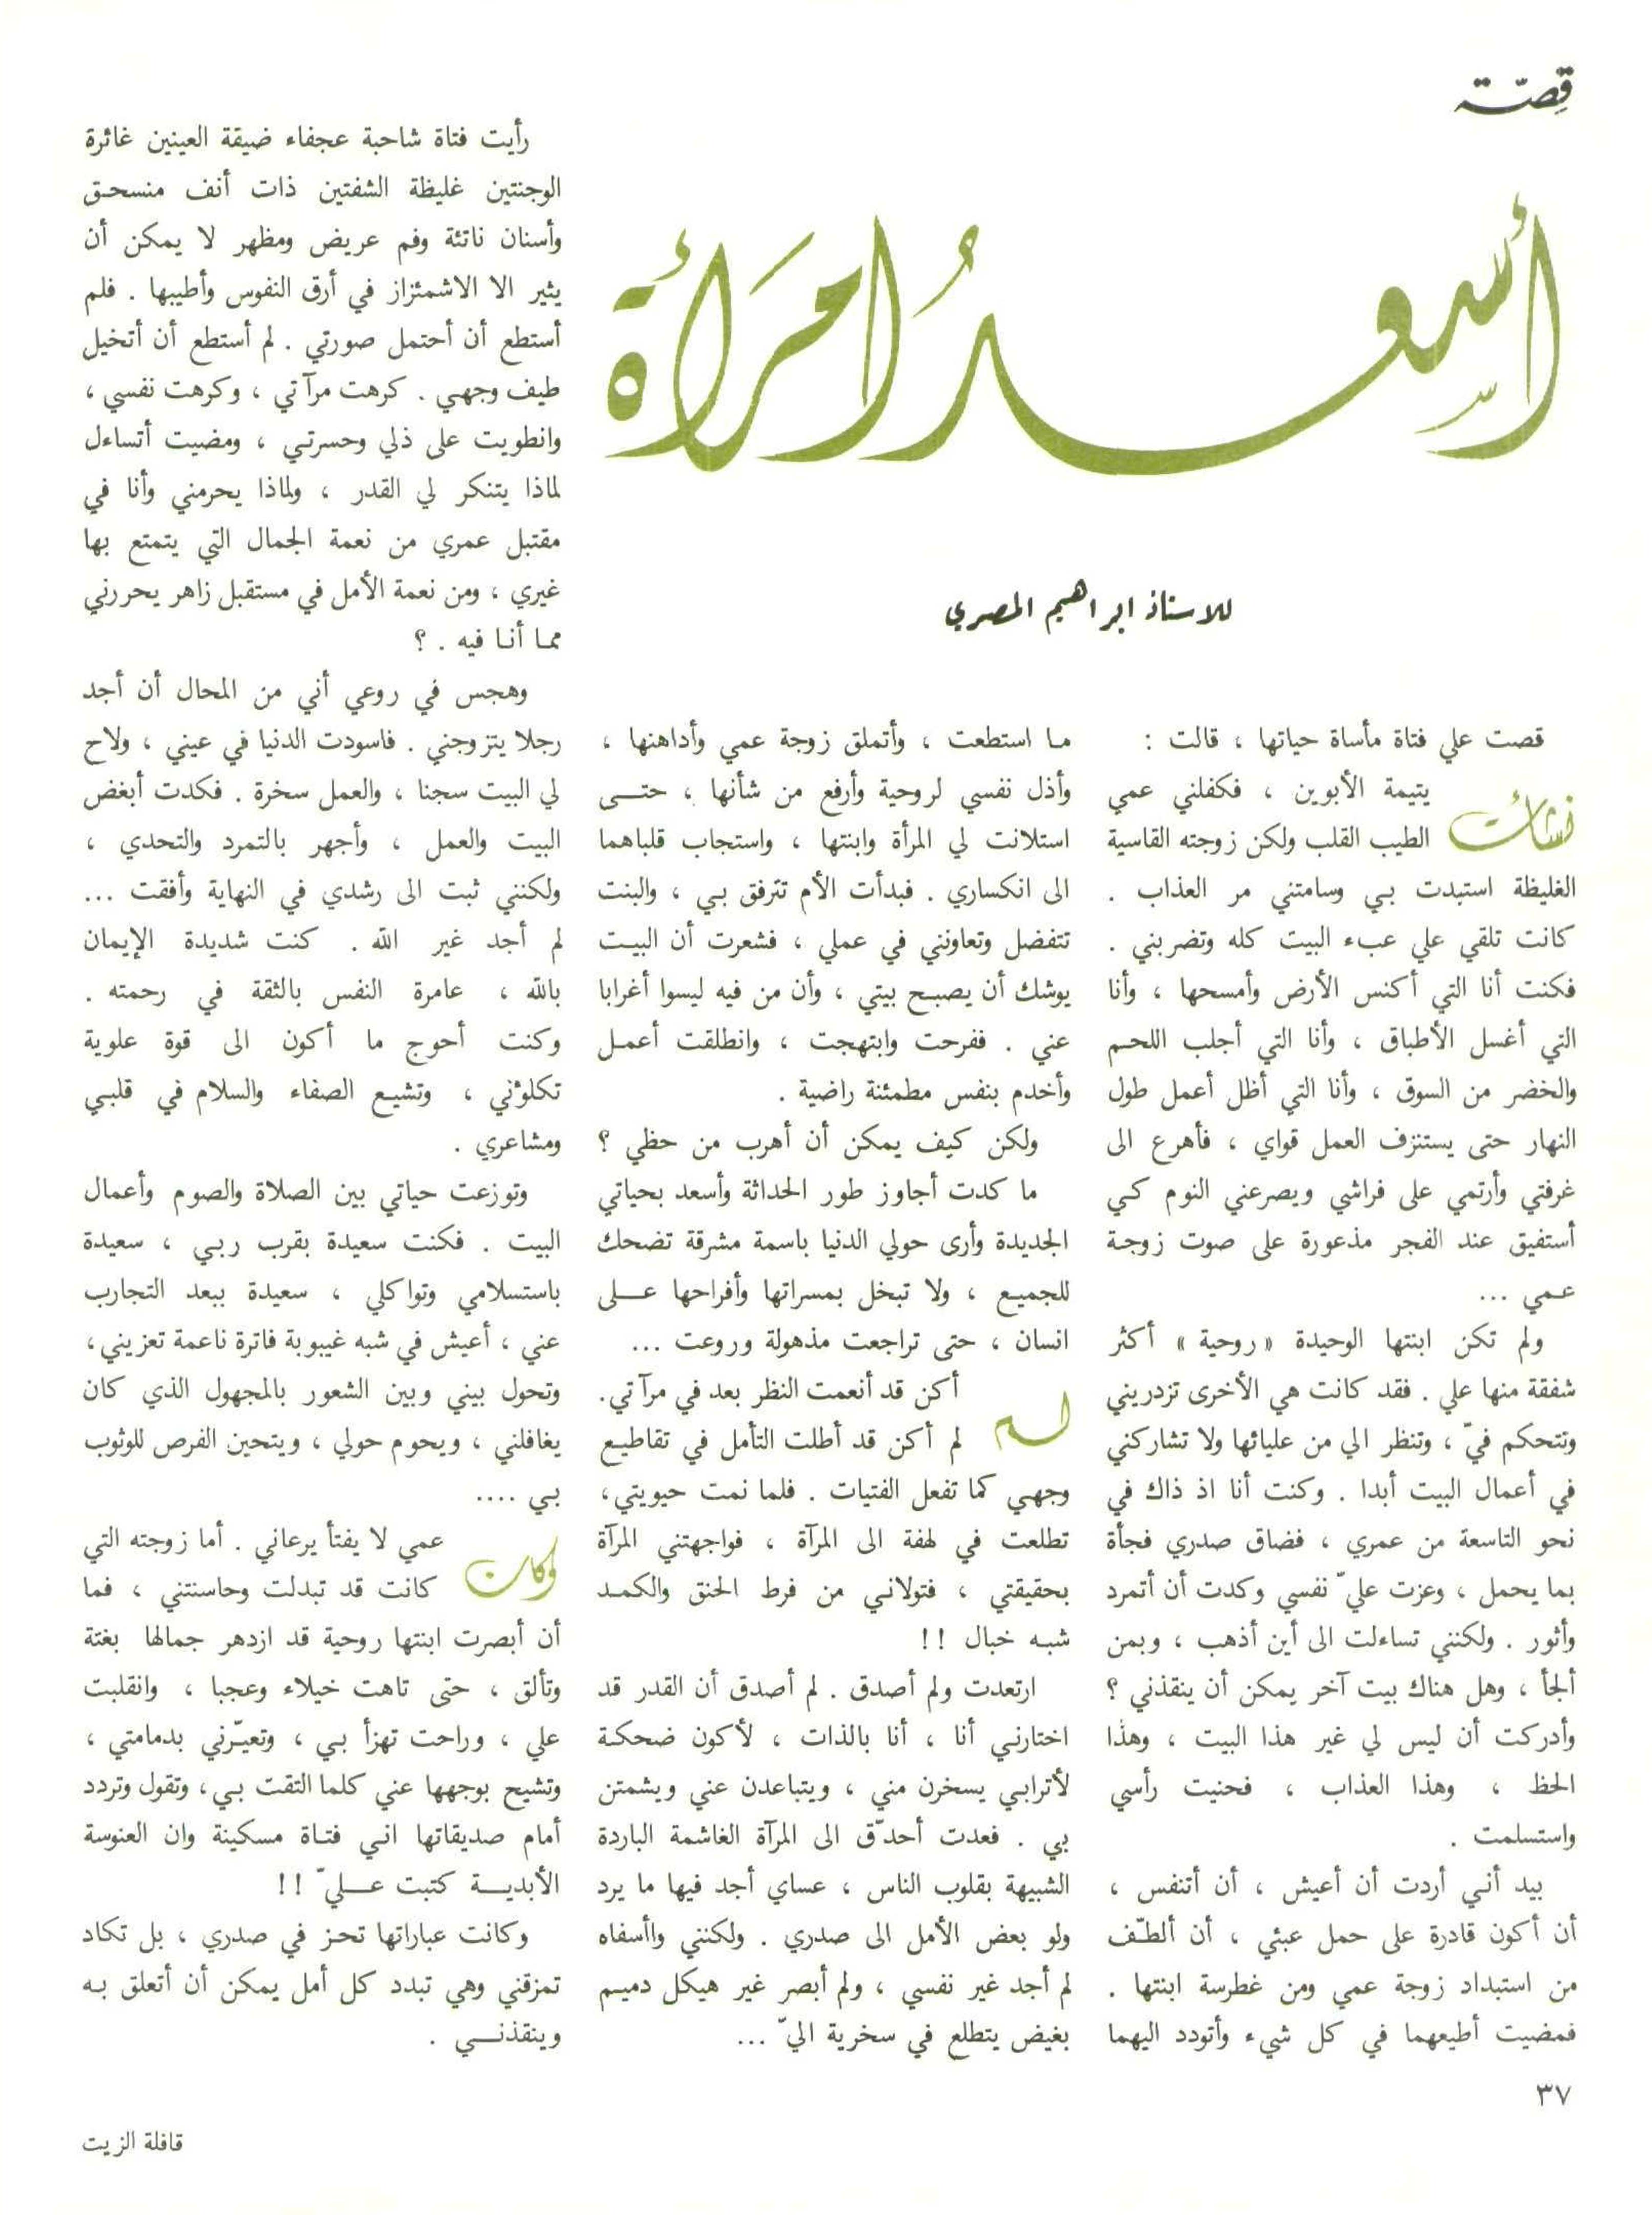 قصّة
أسعد امرأة
للاستاذ ابراهيم المصري
قصت علي فتاة مأساة حياتها ، قالت :
نشأت يتيمة الأبوين ، فكفلني عمي
الطيب القلب ولكن زوجته القاسية
الغليظة استبدت بي وسامتني مر العذاب .
كانت تلقي علي عبء البيت كله وتضربني .
فكنت أنا التي أكنس الأرض وأمسحها ، وأنا
التي أغسل الأطباق ، وأنا التي أجلب اللحم
والخضر من السوق ، وأنا التي أظل أعمل طول
النهار حتى يستنزف العمل قواي ، فأهرع الى
غرفتي وأرتمي على فراشي ويصرعني النوم كي
أستفيق عند الفجر مذعورة على صوت زوجة
عمي ...
ولم تكن ابنتها الوحيدة « روحية » أكثر
شفقة منها علي . فقد كانت هي الأخرى تزدريني
وتتحكم فيّ ، وتنظر الي من عليائها ولا تشاركني
في أعمال البيت أبدا . وكنت أنا اذ ذاك في
نحو التاسعة من عمري ، فضاق صدري فجأة
بما يحمل ، وعزت عليّ نفسي وكدت أن أتمرد
وأثور . ولكنني تساءلت الى أين أذهب ، وبمن
ألجأ ، وهل هناك بيت آخر يمكن أن ينقذني ؟
وأدركت أن ليس لي غير هذا البيت ، وهذا
الحظ ، وهذا العذاب ، فحنيت رأسي
واستسلمت .
بيد أني أردت أن أعيش ، أن أتنفس ،
أن أكون قادرة على حمل عبئي ، أن ألطّف
من استبداد زوجة عمي ومن غطرسة ابنتها .
فمضيت أطيعهما في كل شيء وأتودد اليهما
ما استطعت ، وأتملق زوجة عمي وأداهنها ،
وأذل نفسي لروحية وأرفع من شأنها ، حتى
استلانت لي المرأة وابنتها ، واستجاب قلباهما
الى انكساري . فبدأت الأم تترفق بي ، والبنت
تتفضل وتعاونني في عملي ، فشعرت أن البيت
يوشك أن يصبح بيتي ، وأن من فيه ليسوا أغرابا
عني . ففرحت وابتهجت ، وانطلقت أعمل
وأخدم بنفس مطمئنة راضية .
ولكن كيف يمكن أن أهرب من حظي ؟
ما كدت أجاوز طور الحداثة وأسعد بحياتي
الجديدة وأرى حولي الدنيا باسمة مشرقة تضحك
للجميع ، ولا تبخل بمسراتها وأفراحها على
انسان ، حتى تراجعت مذهولة وروعت ...
لم أكن قد أنعمت النظر بعد في مرآتي .
لم أكن قد أطلت التأمل في تقاطيع
وجهي كما تفعل الفتيات . فلما نمت حيويتي ،
تطلعت في لهفة الى المرآة ، فواجهتني المرآة
بحقيقتي ، فتولاني من فرط الحنق والكمد
شبه خبال !!
ارتعدت ولم أصدق . لم أصدق أن القدر قد
اختارني أنا ، أنا بالذات ، لأكون ضحكة
لأترابي يسخرن مني ، ويتباعدن عني ويشمتن
بي . فعدت أحدّق الى المرآة الغاشمة الباردة
الشبيهة بقلوب الناس ، عساي أجد فيها ما يرد
ولو بعض الأمل الى صدري . ولكنني واأسفاه
لم أجد غير نفسي ، ولم أبصر غير هيكل دميم
بغيض يتطلع في سخرية اليّ ...
رأيت فتاة شاحبة عجفاء ضيقة العينين غائرة
الوجنتين غليظة الشفتين ذات أنف منسحق
وأسنان ناتئة وفم عريض ومظهر لا يمكن أن
يثير الا الاشمئزاز في أرق النفوس وأطيبها . فلم
أستطع أن أحتمل صورتي . لم أستطع أن أتخيل
طيف وجهي . كرهت مرآتي ، وكرهت نفسي ،
وانطويت على ذلي وحسرتي ، ومضيت أتساءل
لماذا يتنكر لي القدر ، ولماذا يحرمني وأنا في
مقتبل عمري من نعمة الجمال التي يتمتع بها
غيري ، ومن نعمة الأمل في مستقبل زاهر يحررني
مما أنا فيه . ؟
وهجس في روعي أني من المحال أن أجد
رجلا يتزوجني . فاسودت الدنيا في عيني ، ولاح
لي البيت سجنا ، والعمل سخرة . فكدت أبغض
البيت والعمل ، وأجهر بالتمرد والتحدي ،
ولكنني ثبت الى رشدي في النهاية وأفقت ...
لم أجد غير الله . كنت شديدة الإيمان
بالله ، عامرة النفس بالثقة في رحمته .
وكنت أحوج ما أكون الى قوة علوية
تكلؤني ، وتشيع الصفاء والسلام في قلبي
ومشاعري .
وتوزعت حياتي بين الصلاة والصوم وأعمال
البيت . فكنت سعيدة بقرب ربي ، سعيدة
باستسلامي وتواكلي ، سعيدة ببعد التجارب
عني ، أعيش في شبه غيبوبة فاترة ناعمة تعزيني ،
وتحول بيني وبين الشعور بالمجهول الذي كان
يغافلني ، ويحوم حولي ، ويتحين الفرص للوثوب
بي ....
وكان عمي لا يفتأ يرعاني . أما زوجته التي
كانت قد تبدلت وحاسنتني ، فما
أن أبصرت ابنتها روحية قد ازدهر جمالها بغتة
وتألق ، حتى تاهت خيلاء وعجبا ، وانقلبت
علي ، وراحت تهزأ بي ، وتعيّرني بدمامتي ،
وتشيح بوجهها عني كلما التقت بي ، وتقول وتردد
أمام صديقاتها اني فتاة مسكينة وان العنوسة
الأبدية كتبت عليّ !!
وكانت عباراتها تحز في صدري ، بل تكاد
تمزقني وهي تبدد كل أمل يمكن أن أتعلق به
وينقذني .
٣٧
قافلة الزيت